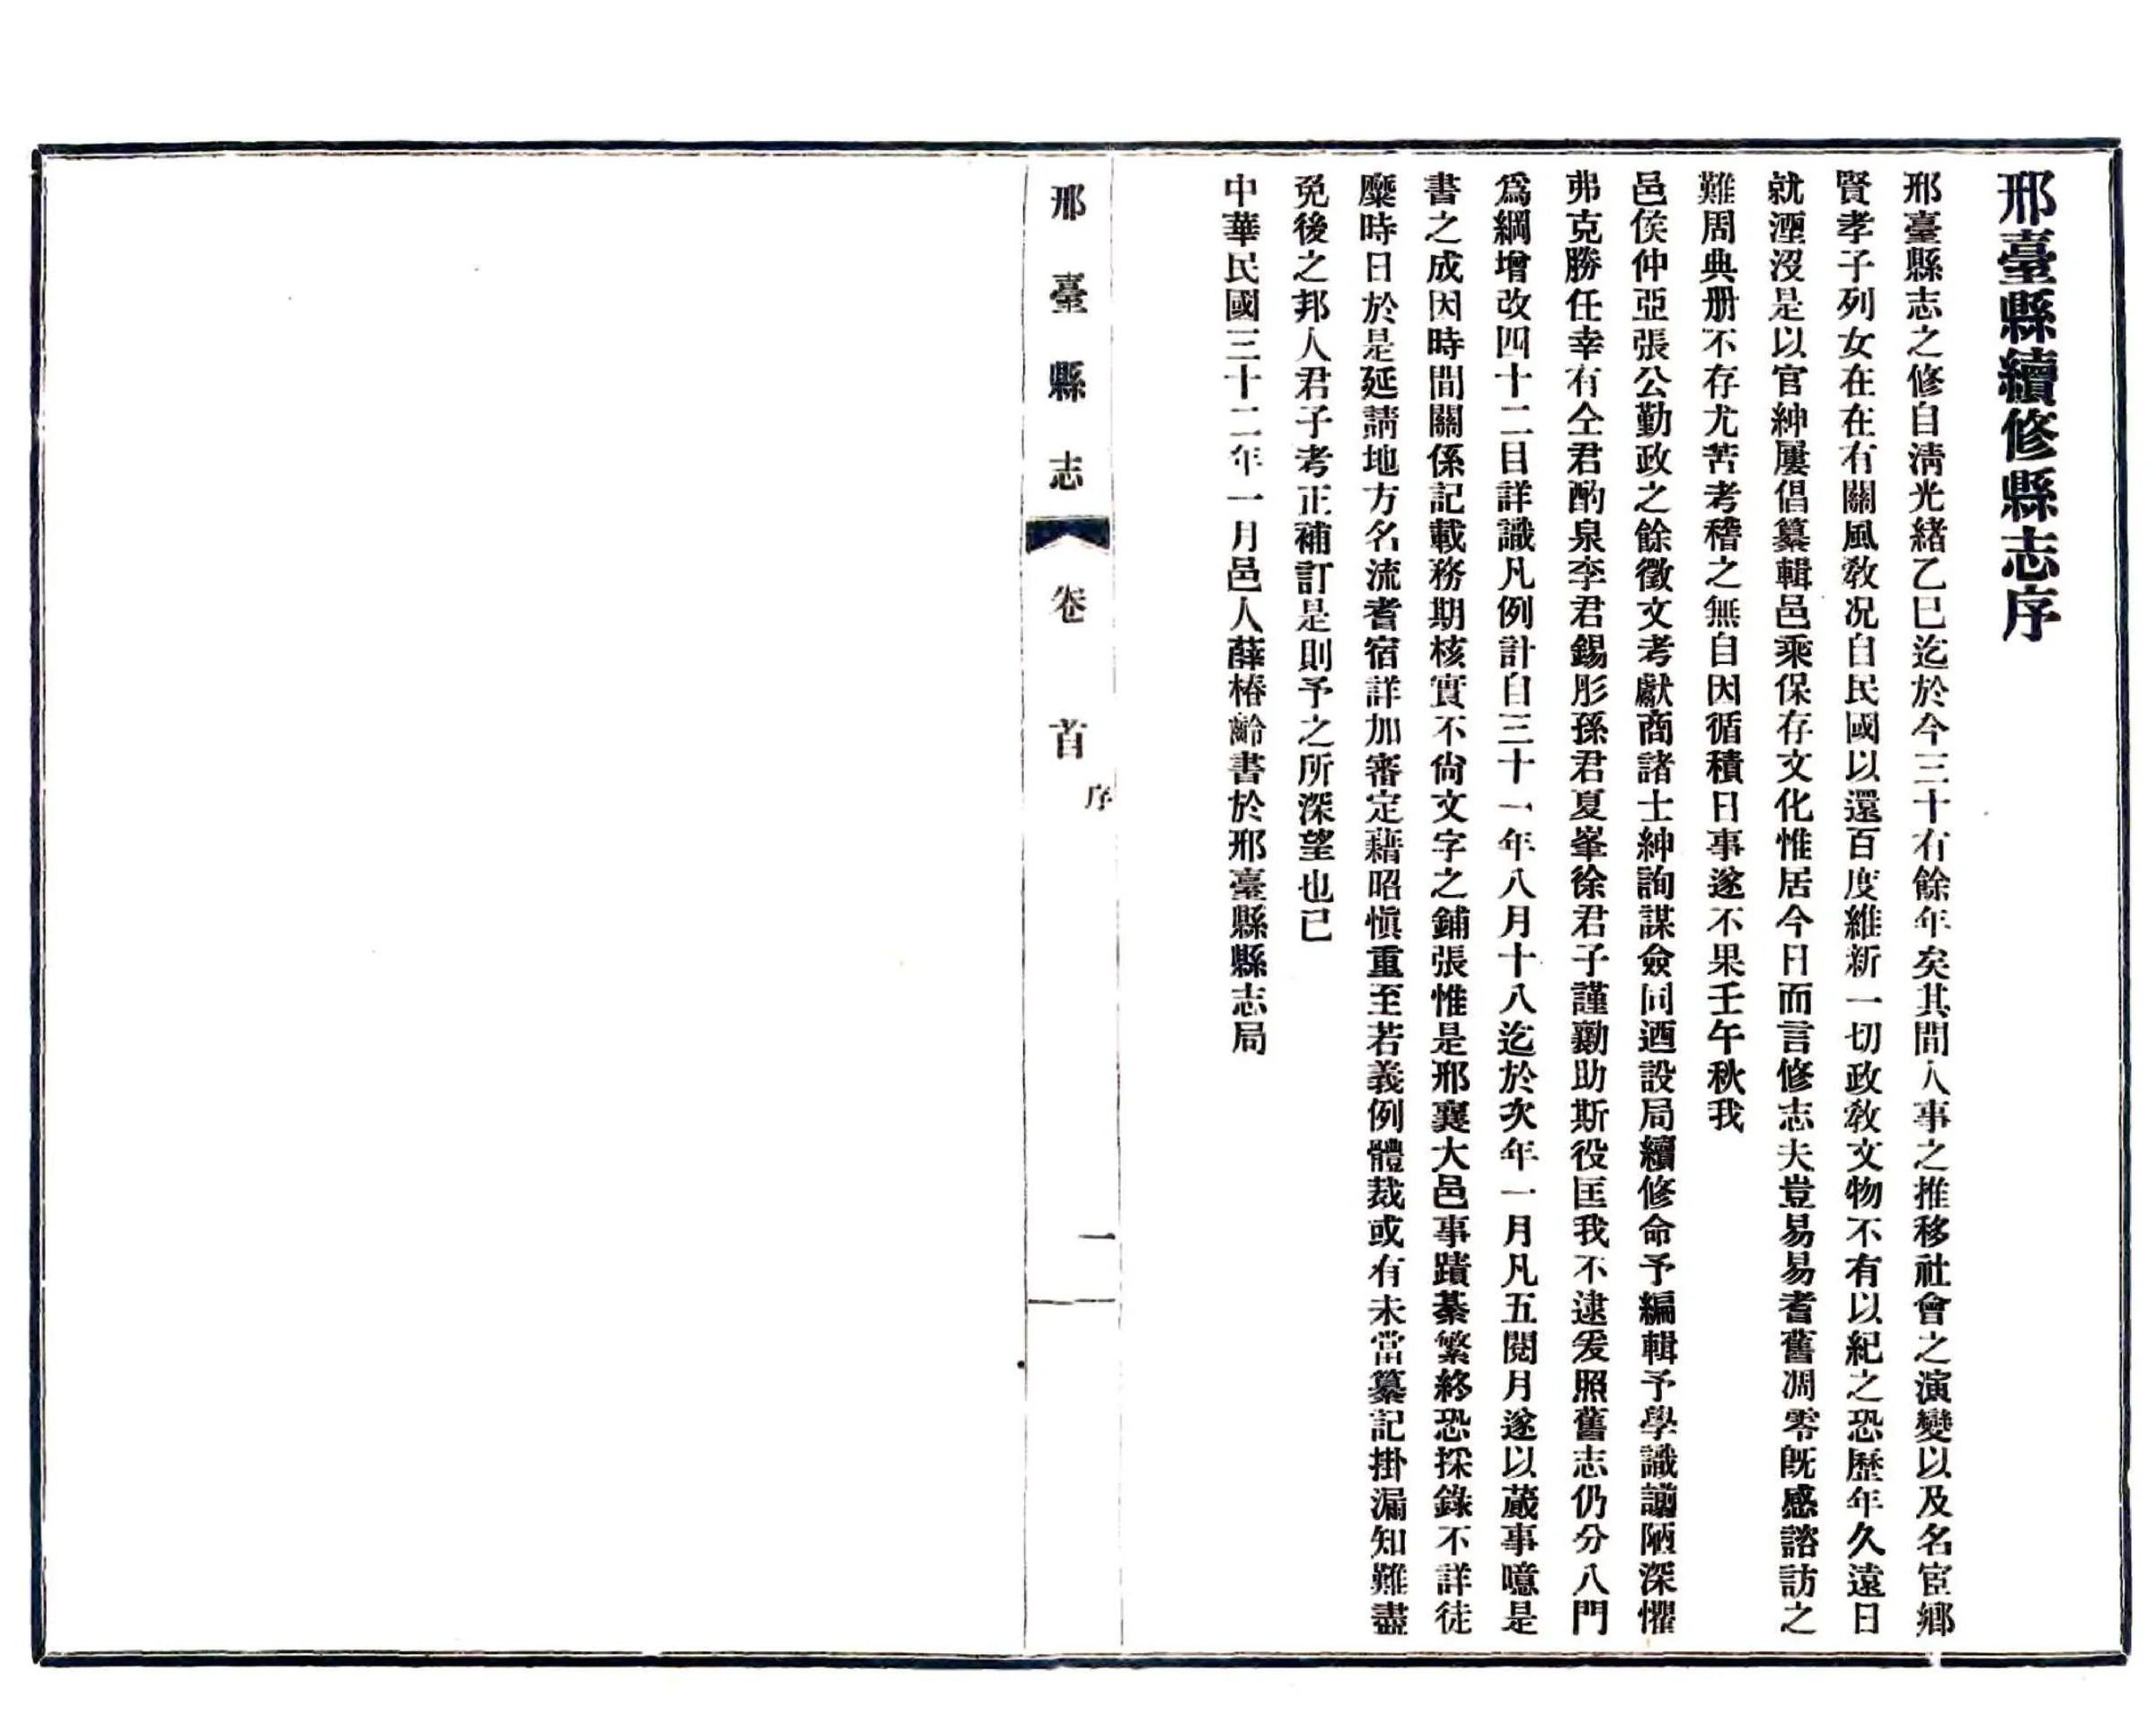 邢臺縣續修縣志序
邢臺縣志之修自淸光緖乙巳迄於今三十有餘年矣其間人事之推移社會之演變以及名宦鄕
賢孝子列女在在有關風敎况自民國以還百度維新一切政敎文物不有以紀之恐歷年久遠日
就湮沒是以官紳屢倡纂輯邑乘保存文化惟居今日而言修志夫豈易易耆舊凋零旣感諮訪之
難周典册不存尤苦考稽之無自因循積日事遂不果壬午秋我
邑侯仲亞張公勤政之餘徵文考獻商諸士紳詢謀僉同迺設局續修命予編輯予學識謭陋深懼
弗克勝任幸有仝君酌泉李君錫彤孫君夏峯徐君子謹勷助斯役匡我不逮爰照舊志仍分八門
爲綱增改四十二目詳識凡例計自三十一年八月十八迄於次年一月凡五閱月遂以蕆事噫是
書之成因時間關係記載務期核實不尙文字之鋪張惟是邢襄大邑事蹟綦繁終恐採錄不詳徒
糜時日於是延請地方名流耆宿詳加審定藉昭愼重至若義例體裁或有未當纂記掛漏知難盡
免後之邦人君子考正補訂是則予之所深望也已
中華民國三十二年一月邑人薛椿齡書於邢臺縣縣志局
邢臺縣志
卷首
序
一